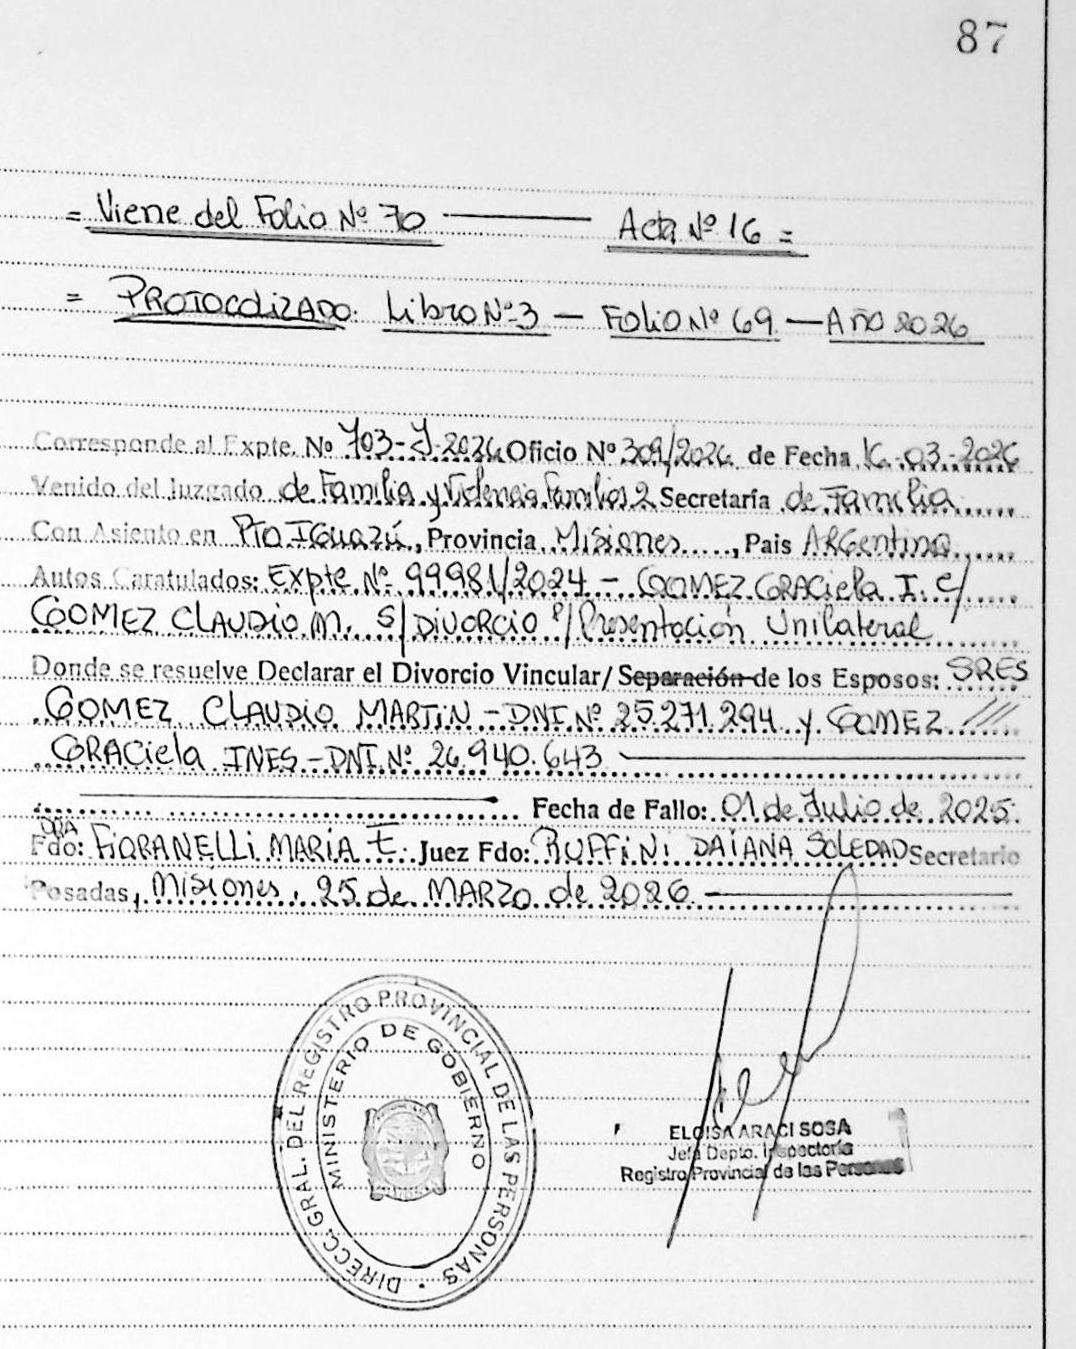 87
= Viene del Folio Nº 70 ——— Acta Nº 16 =
= PROTOCOLIZADO: Libro Nº 3 — Folio Nº 69 — Año 2026
Corresponde al Expte. Nº 703-J-2026 Oficio Nº 309/2026 de Fecha 16-03-2026
Venido del Juzgado de Familia y Violencia Familiar 2 Secretaría de Familia
Con Asiento en Pto IGuazú, Provincia Misiones, Pais ARGentina
Autos Caratulados: Expte Nº 99981/2024 - GOMEZ GRACiela I. c/
GOMEZ CLAUDIO M. S/ DIVORCIO P/ Presentación Unilateral
Donde se resuelve Declarar el Divorcio Vincular/ Separación de los Esposos: SRES
GOMEZ CLAUDIO MARTIN - DNI Nº 25.271.294 y GOMEZ ///
GRACiela INES - DNI Nº 26.940.643 ———
——— Fecha de Fallo: 01 de Julio de 2025.
DRA
Fdo: FIORANELLI MARIA E. Juez Fdo: RUFFINI DAIANA SOLEDAD Secretario
Posadas, Misiones, 25 de MARZO de 2026 ———
DIRECC. GRAL. DEL REGISTRO PROVINCIAL DE LAS PERSONAS
MINISTERIO DE GOBIERNO
ELOISA ARACI SOSA
Jefa Depto. Inspectoría
Registro Provincial de las Personas